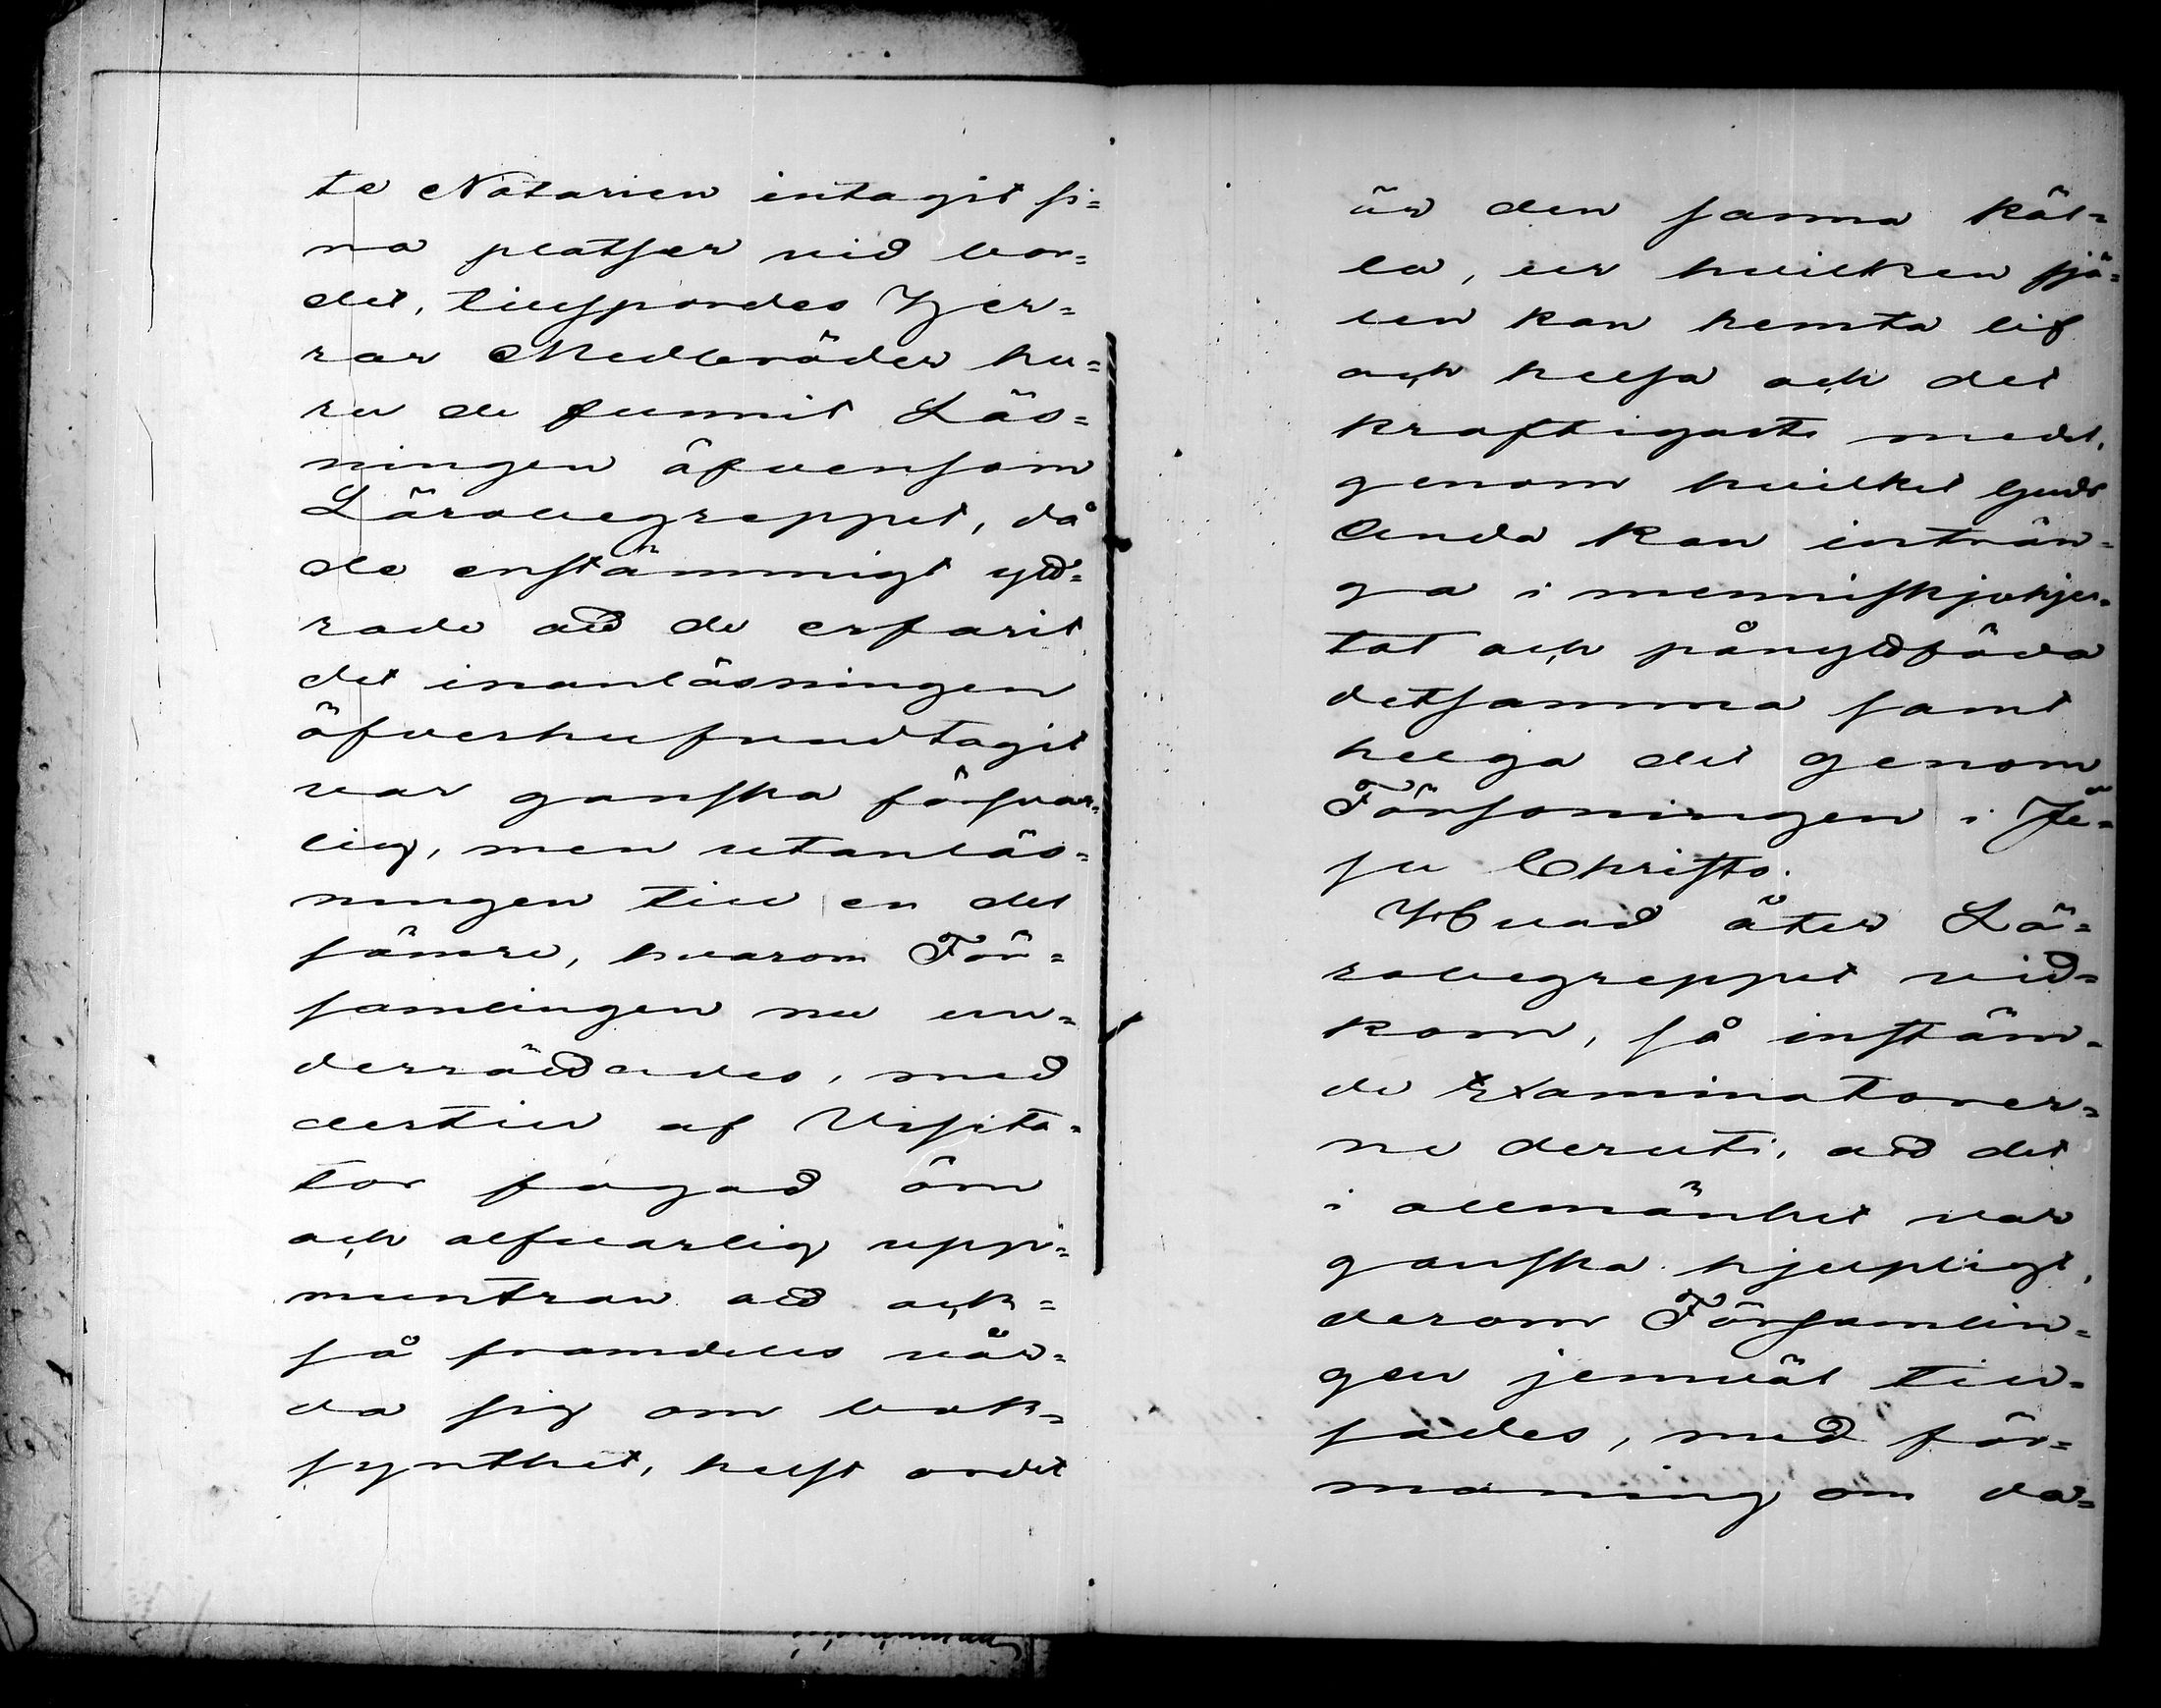 te Notarien intagit si=
na platser vid bor=
det, tillspordes Her=
rar Medbröder hu=
ru de funnit Läs=
ningen äfvensom
Lärobegreppet, då
de enstämmigt ytt=
rade att de erfarit
det innanläsningen
öfverhufvudtagit
var ganska försvar=
lig, men utanläs=
ningen till en del
sämre, hvarom För=
samlingen nu un=
derrättades, med
dertill af Visita=
tor fogad öm
och alfvarlig upp=
muntran att ock=
så framdeles vår=
da sig om bok=
synthet, helst ordet
är den sanna käl=
la, ur hvilken sjä=
len kan hemta lif
och helsa och det
kraftigaste medel,
genom hvilket Guds
Anda kan inträn=
ga i menniskjohjer=
tat och pånyttföda
detsamma samt
helga det genom
Försoningen i Je=
su Christo.
Hvad åter Lä=
robegreppet vid=
kom, så instäm=
de Examinatorer=
ne deruti, att det
i allmänhet var
ganska hjelpligt,
derom Församlin=
gen jemväl till=
sades, med för=
maning om da=